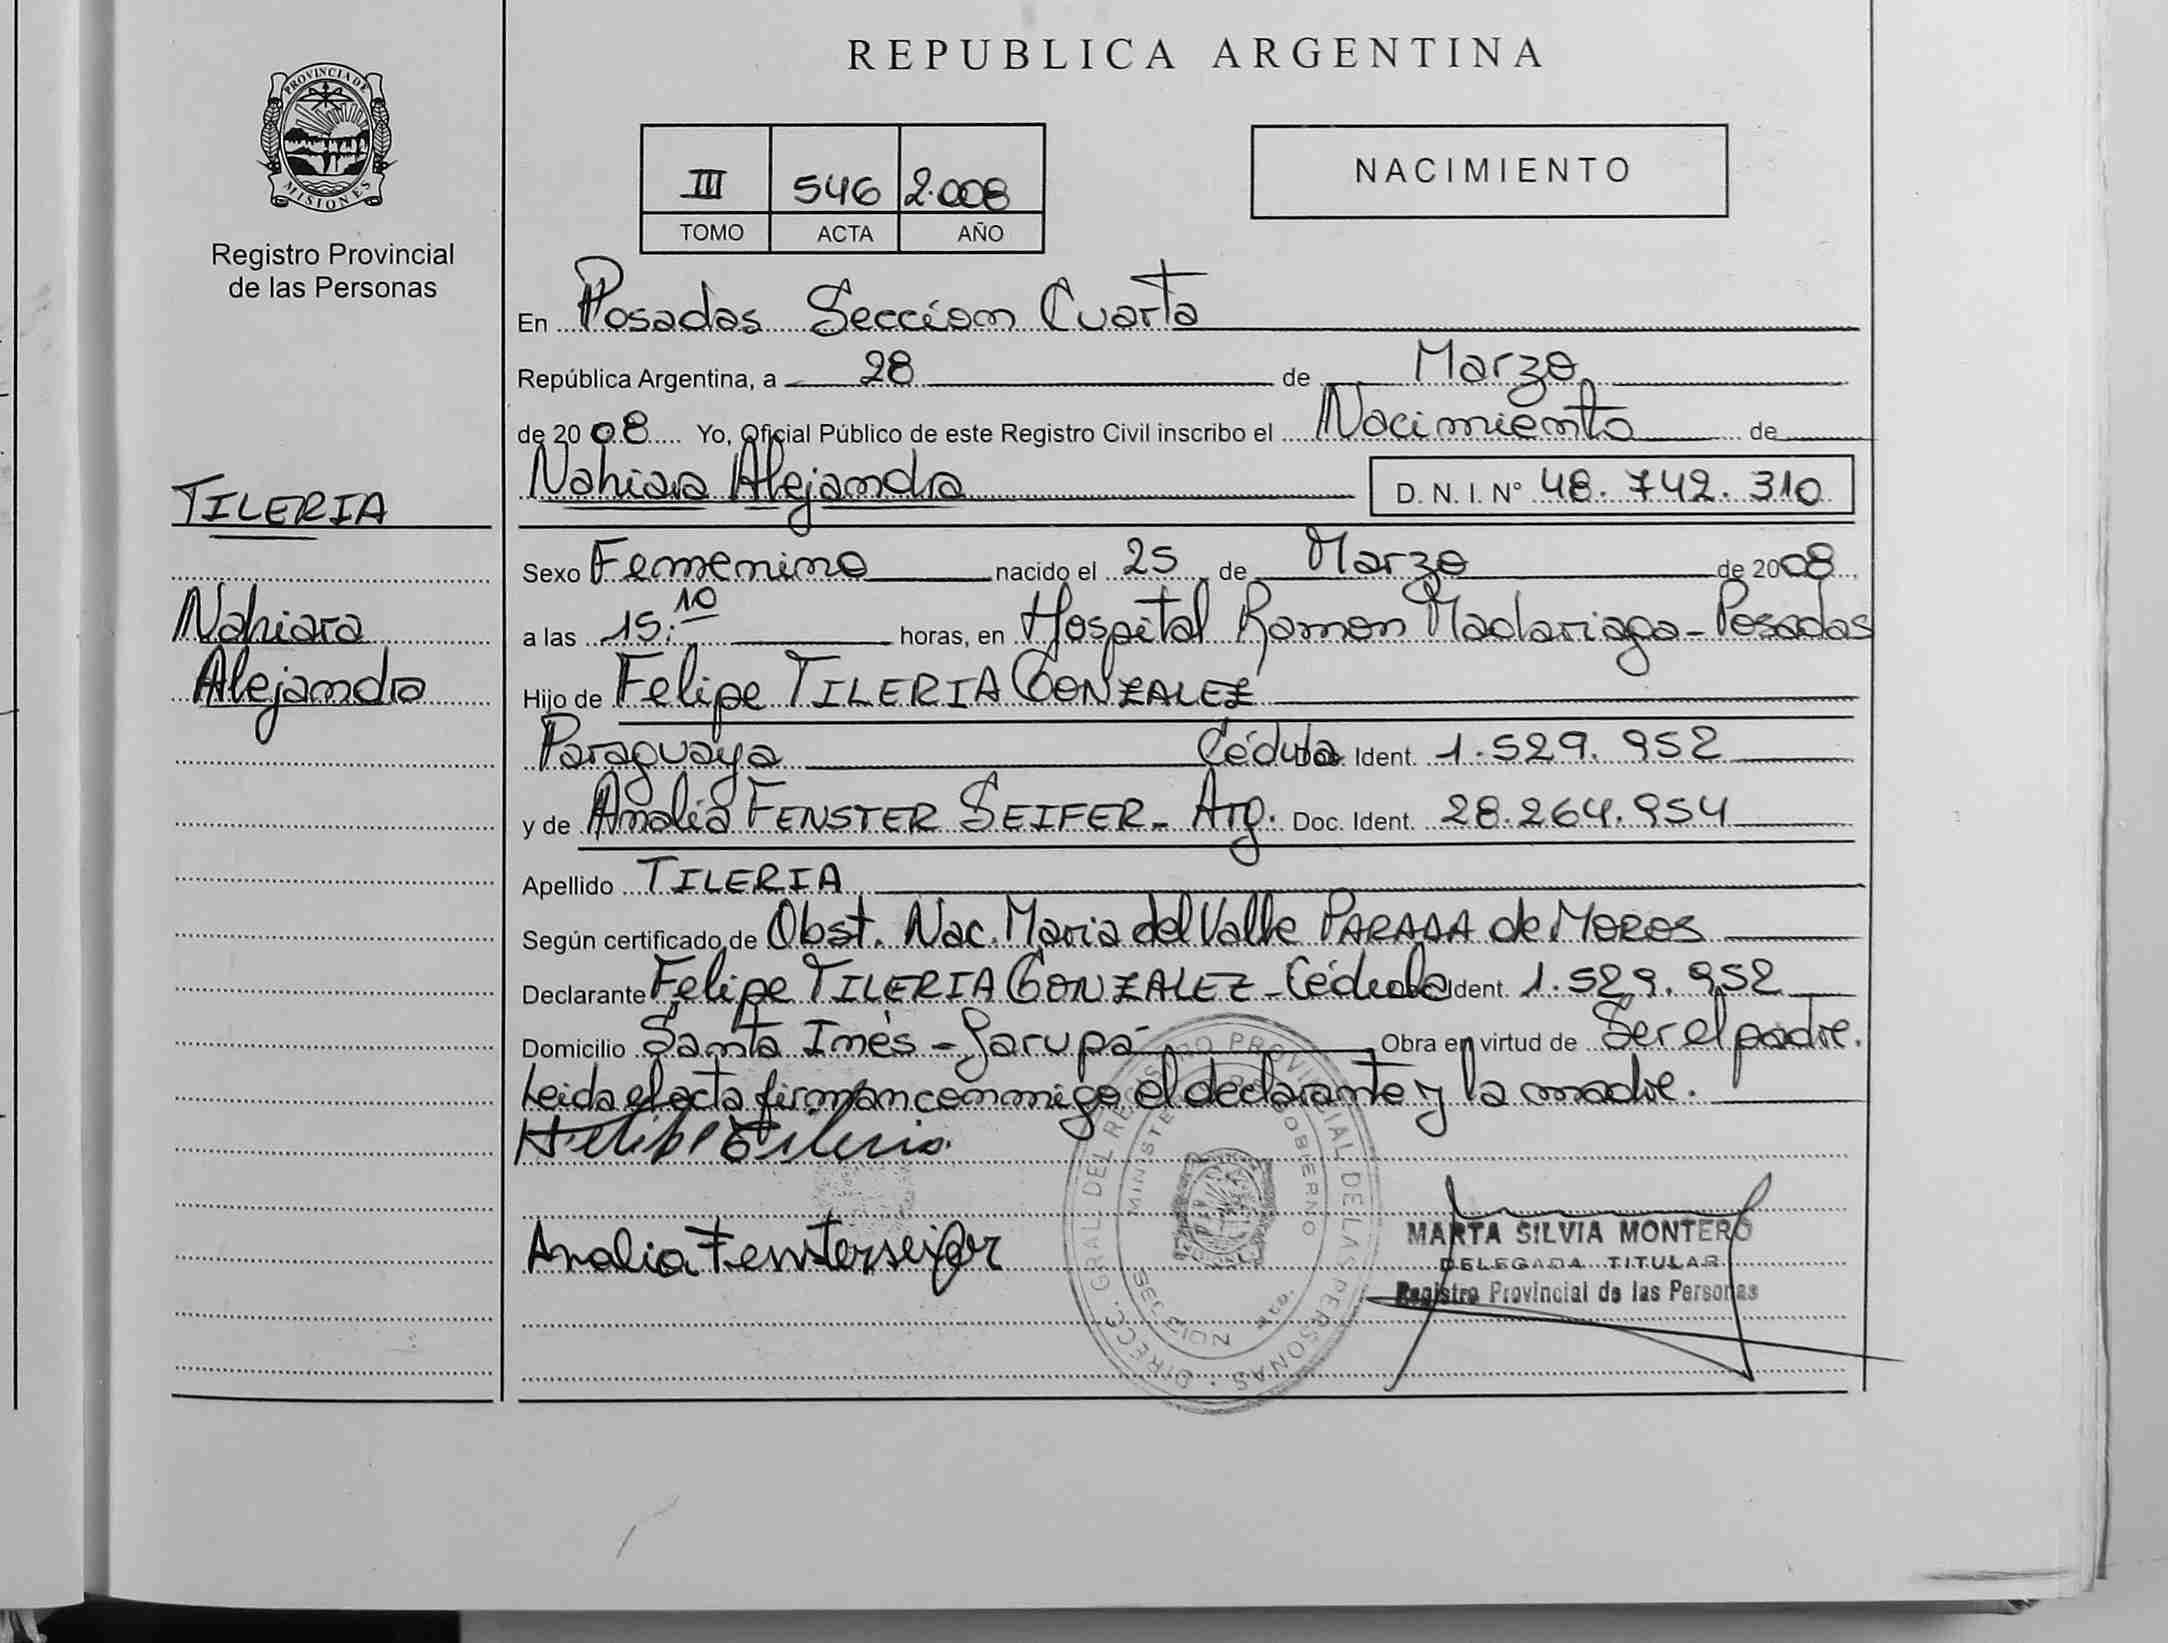 REPUBLICA ARGENTINA
PROVINCIA DE
MISIONES
Registro Provincial
de las Personas
III 546 2.008
TOMO ACTA AÑO
NACIMIENTO
En Posadas Sección Cuarta
República Argentina, a 28 de Marzo
de 20 08 Yo, Oficial Público de este Registro Civil inscribo el Nacimiento de
Nahiara Alejandra D. N. I. N° 48.742.310
TILERIA
Nahiara
Alejandra
Sexo Femenino nacido el 25 de Marzo de 2008
a las 15:10 horas, en Hospital Ramon Madariaga - Posadas
Hijo de Felipe TILERIA GONZALEZ
Paraguaya Cédula Ident. 1.529.952
y de Analia FENSTER SEIFER - Arg. Doc. Ident. 28.264.954
Apellido TILERIA
Según certificado de Obst. Nac. Maria del Valle PARADA de MOROS
Declarante Felipe TILERIA GONZALEZ - Cédula Ident. 1.529.952
Domicilio Santa Inés - Garupá Obra en virtud de Ser el padre.
Leida el acta firman conmigo el declarante y la madre.
Felipe Tileria
Analia Fensterseifer
DIRECC. GRAL. DEL REGISTRO PROVINCIAL DE LAS PERSONAS
GOBIERNO
MARTA SILVIA MONTERO
DELEGADA TITULAR
Registro Provincial de las Personas